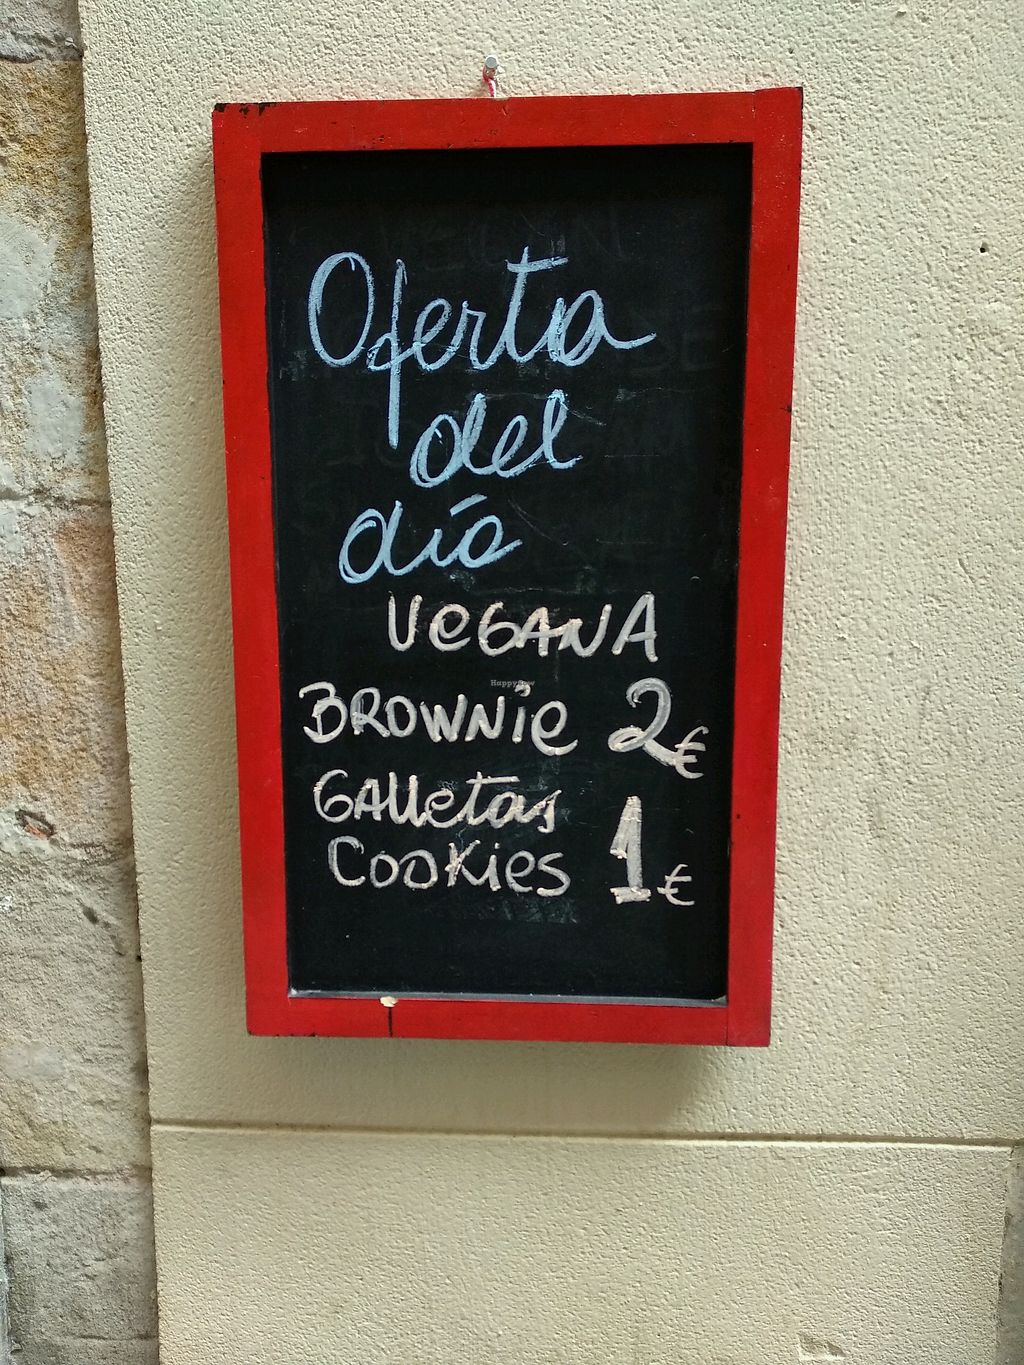 Oferta
del
día
VEGANA
BROWNIE 2€
GALLETAS
COOKIES 1€
HappyCow